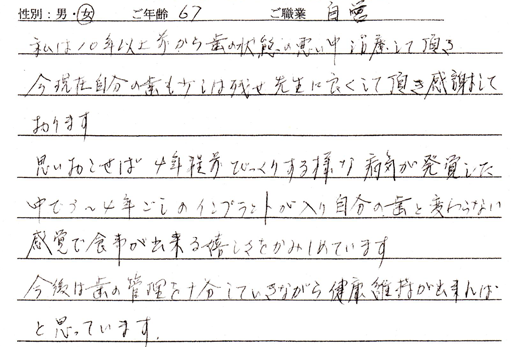 性別：男・女 ご年齢 67 ご職業 自営
私は10年以上前から歯の状態の悪い中 治療して頂き
今現在自分の歯も少しは残せ先生に良くして頂き感謝して
おります
思いおこせば 4年程前 びっくりする様な 病気が発覚した
中で3～4年ごしのインプラントが入り自分の歯と変わらない
感覚で食事が出来る嬉しさをかみしめています
今後は歯の管理を十分していきながら健康維持が出来れば
と思っています.